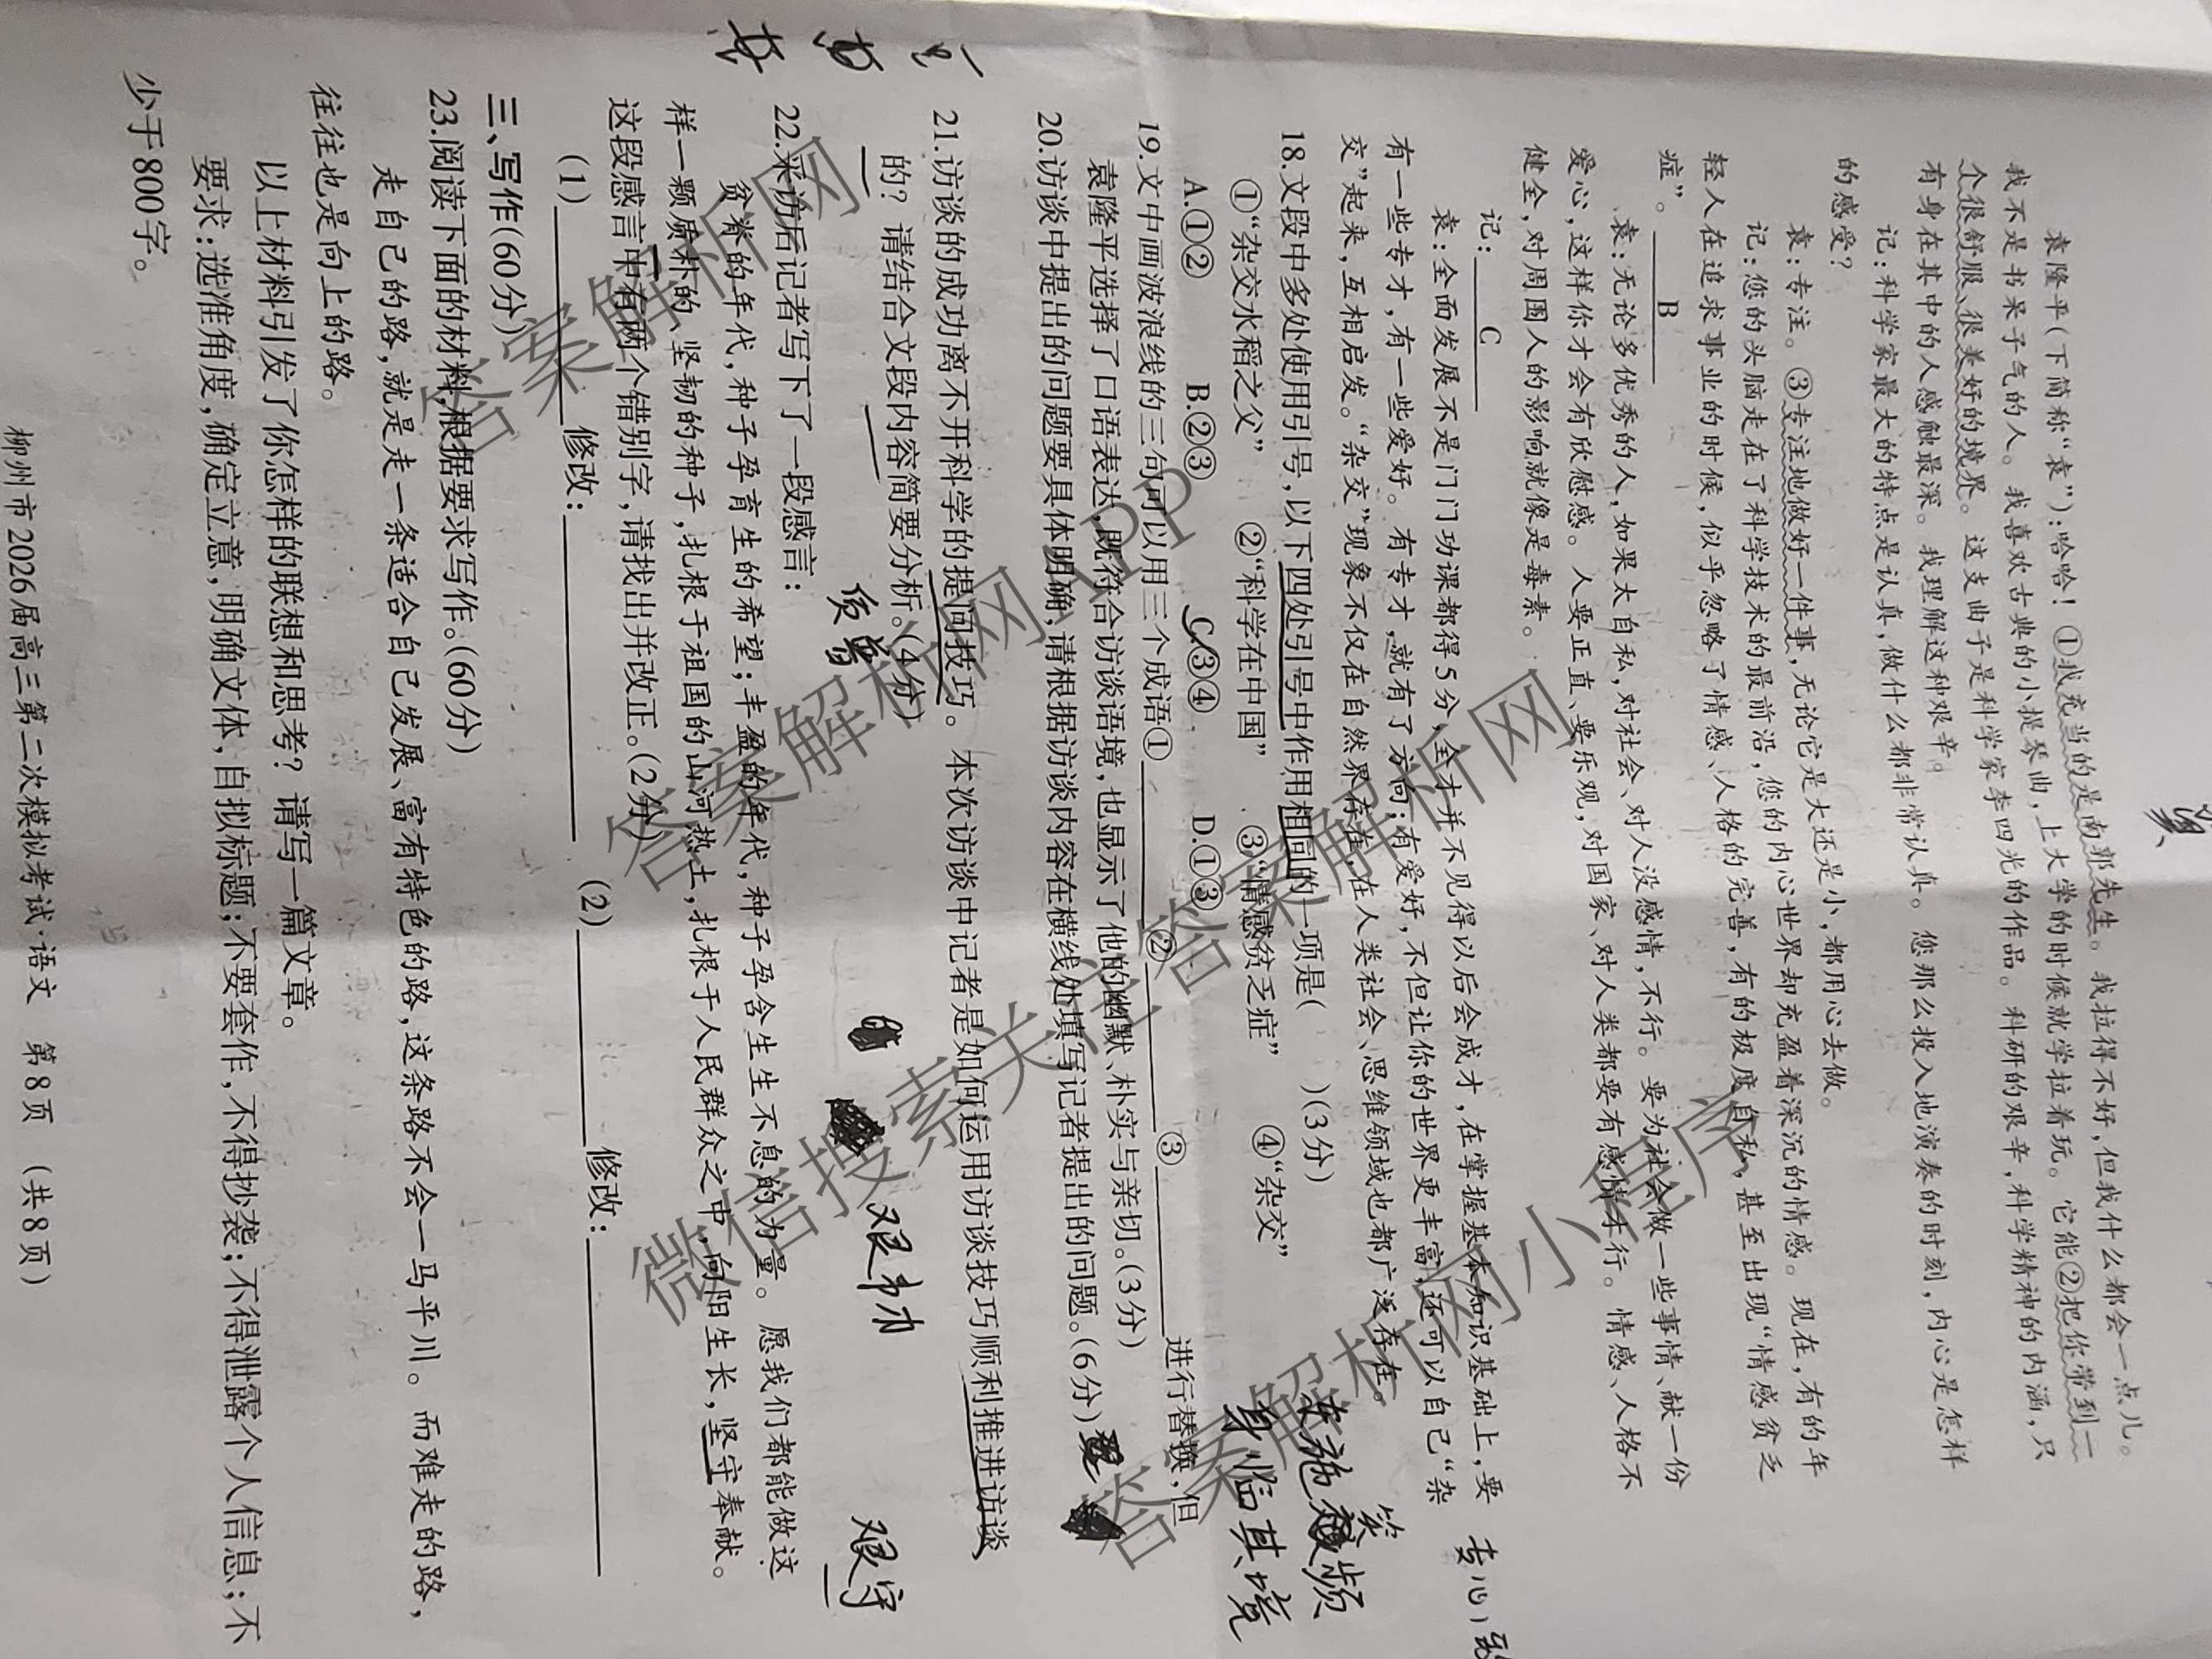 翼
袁隆平(下简称“袁”):哈哈!①我充当的是南郭先生。我拉得不好,但我什么都会一点儿。
我不是书呆子气的人。我喜欢古典的小提琴曲,上大学的时候就学拉着玩。它能②把你带到一
个很舒服、很美好的境界。这支曲子是科学家李四光的作品。科研的艰辛,科学精神的内涵,只
有身在其中的人感触最深。我理解这种艰辛。
记:科学家最大的特点是认真,做什么都非常认真。您那么投入地演奏的时刻,内心是怎样
的感受?
袁:专注。③专注地做好一件事,无论它是大还是小,都用心去做。
记:您的头脑走在了科学技术的最前沿,您的内心世界却充盈着深沉的情感。现在,有的年
轻人在追求事业的时候,似乎忽略了情感、人格的完善,有的极度自私,甚至出现“情感贫乏
症”。 B
袁:无论多优秀的人,如果太自私,对社会、对人没感情,不行。要为社会做一些事情、献一份
爱心,这样你才会有欣慰感。人要正直、要乐观,对国家、对人类都要有感情才行。情感、人格不
健全,对周围人的影响就像是毒素。
记: C
袁:全面发展不是门门功课都得5分,全才并不见得以后会成才,在掌握基本知识基础上,要
有一些专才,有一些爱好。有专才,就有了方向;有爱好,不但让你的世界更丰富,还可以自己“杂
交”起来,互相启发。“杂交”现象不仅在自然界存在,在人类社会、思维领域也都广泛存在。
专心
18.文段中多处使用引号,以下四处引号中作用相同的一项是( )(3分)
东施效颦
笑
①“杂交水稻之父” ②“科学在中国” ③“情感贫乏症” ④“杂交”
身临其境
A.①② B.②③ C.③④ D.①③
19.文中画波浪线的三句可以用三个成语① ② ③ 进行替换,但
袁隆平选择了口语表达,既符合访谈语境,也显示了他的幽默、朴实与亲切。(3分)
20.访谈中提出的问题要具体明确,请根据访谈内容在横线处填写记者提出的问题。(6分)
21.访谈的成功离不开科学的提问技巧。本次访谈中记者是如何运用访谈技巧顺利推进访谈
的?请结合文段内容简要分析。(4分)
22.采访后记者写下了一段感言:
贫脊的年代,种子孕育生的希望;丰盈的年代,种子孕含生生不息的力量。愿我们都能做这
样一颗质朴的、坚韧的种子,扎根于祖国的山河热土,扎根于人民群众之中,向阳生长,坚守奉献。
这段感言中有两个错别字,请找出并改正。(2分)
(1) 修改: (2) 修改:
三、写作(60分)
23.阅读下面的材料,根据要求写作。(60分)
走自己的路,就是走一条适合自己发展、富有特色的路,这条路不会一马平川。而难走的路,
往往也是向上的路。
以上材料引发了你怎样的联想和思考?请写一篇文章。
要求:选准角度,确定立意,明确文体,自拟标题;不要套作,不得抄袭;不得泄露个人信息;不
少于800字。
柳州市2026届高三第二次模拟考试·语文 第8页 (共8页)
微信搜索关注答案解析网
答案解析网APP
答案解析网
答案解析网小程序